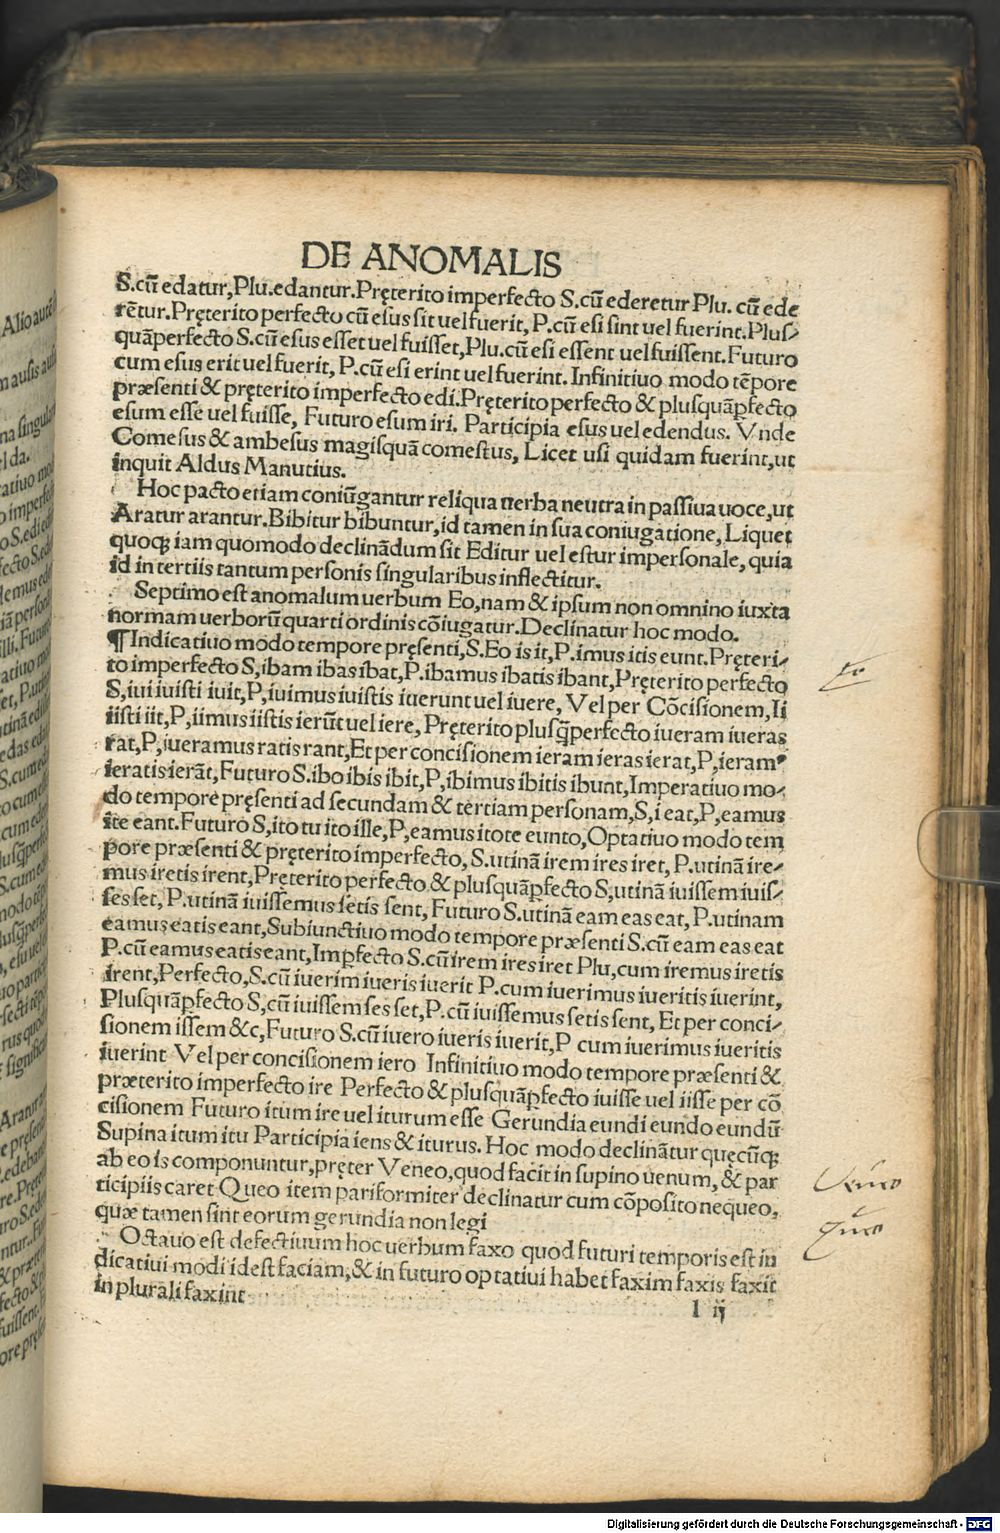 DE ANOMALIS
S.cũ edatur,Plu.edantur.Pręterito imperfecto S.cũ ederetur Plu. cũ ede
rẽtur.Pręterito perfecto cũ esus sit uel fuerit, P.cũ esi sint uel fuerint.Plus-
quãperfecto S.cũ esus esset uel fuisset,Plu.cũ esi essent uel fuissent.Futuro
cum esus erit uel fuerit, P.cũ esi erint uel fuerint. Infinitiuo modo tẽpore
præsenti & pręterito imperfecto edi.Pręterito perfecto & plusquãꝑfecto
esum esse uel fuisse, Futuro esum iri. Participia esus uel edendus. Vnde
Comesus & ambesus magisquã comestus, Licet usi quidam fuerint,ut
inquit Aldus Manutius.
Hoc pacto etiam coniũgantur reliqua uerba neutra in passiua uoce,ut
Aratur arantur.Bibitur bibuntur,id tamen in sua coniugatione, Liquet
quoqꝫ iam quomodo declinãdum sit Editur uel estur impersonale, quia
id in tertiis tantum personis singularibus inflectitur.
Septimo est anomalum uerbum Eo,nam & ipsum non omnino iuxta
normam uerborũ quarti ordinis cõiugatur.Declinatur hoc modo.
¶Indicatiuo modo tempore pręsenti,S.Eo is it,P.imus itis eunt.Pręteri-
to imperfecto S,ibam ibas ibat,P.ibamus ibatis ibant,Pręterito perfecto
S,iui iuisti iuit,P,iuimus iuistis iuerunt uel iuere, Vel per Cõcisionem,Ii
iisti iit,P,iimus iistis ierũt uel iere, Pręterito plusq̃perfecto iueram iueras
rat,P,iueramus ratis rant,Et per concisionem ieram ieras ierat,P,ieramꝰ
ieratis ierãt,Futuro S.ibo ibis ibit,P,ibimus ibitis ibunt,Imperatiuo mo-
do tempore pręsenti ad secundam & tertiam personam,S,i eat,P,eamus
ite eant.Futuro S,ito tu ito ille,P,eamus itote eunto,Optatiuo modo tem
pore præsenti & pręterito imperfecto, S.utinã irem ires iret, P.utinã ire-
mus iretis irent,Pręterito perfecto & plusquãꝑfecto S,utinã iuissem iuis-
ses set, P.utinã iuissemus setis sent, Futuro S.utinã eam eas eat, P.utinam
eamus eatis eant,Subiunctiuo modo tempore præsenti S.cũ eam eas eat
P.cũ eamus eatis eant,Imꝑfecto S.cũ irem ires iret Plu,cum iremus iretis
irent,Perfecto,S.cũ iuerim iueris iuerit P.cum iuerimus iueritis iuerint,
Plusquãꝑfecto S,cũ iuissem ses set,P.cũ iuissemus setis sent, Et per conci-
sionem issem &c,Futuro S.cũ iuero iueris iuerit,P cum iuerimus iueritis
iuerint Vel per concisionem iero Infinitiuo modo tempore præsenti &
præterito imperfecto ire Perfecto & plusquãꝑfecto iuisse uel iisse per cõ
cisionem Futuro itum ire uel iturum esse Gerundia eundi eundo eundũ
Supina itum itu Participia iens & iturus. Hoc modo declinãtur quęcũqꝫ
ab eo is componuntur,pręter Veneo,quod facit in supino uenum, & par
ticipiis caret Queo item pariformiter declinatur cum cõposito nequeo,
quæ tamen sint eorum gerundia non legi
Octauo est defectiuum hoc uerbum faxo quod futuri temporis est in
dicatiui modi idest faciam,& in futuro optatiui habet faxim faxis faxit
in plurali faxint
I ij
eo
Veneo
Queo
Digitalisierung gefördert durch die Deutsche Forschungsgemeinschaft - DFG